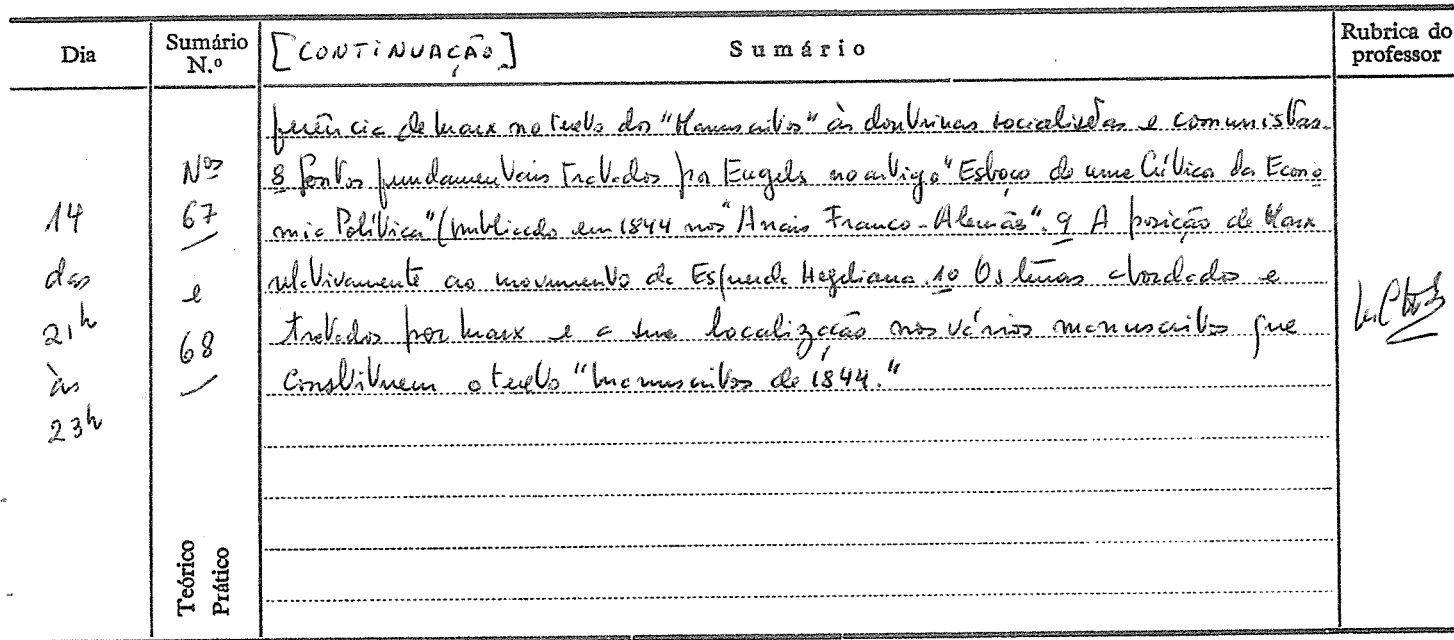 Dia
Sumário N.º
[CONTINUAÇÃO]
Sumário
Rubrica do professor
14
das
21h
às
23h
Nos
67
e
68
Teórico
Prático
ferência de Marx no texto dos "Manuscritos" às doutrinas socialistas e comunistas.
8 Pontos fundamentais tratados por Engels no artigo "Esboço de uma Crítica da Econo
mia Política" (publicado em 1844 nos "Anais Franco-Alemães". 9 A posição de Marx
relativamente ao movimento da Esquerda Hegeliana. 10 Os temas abordados e
tratados por Marx e a sua localização nos vários manuscritos que
constituem o texto "Manuscritos de 1844."